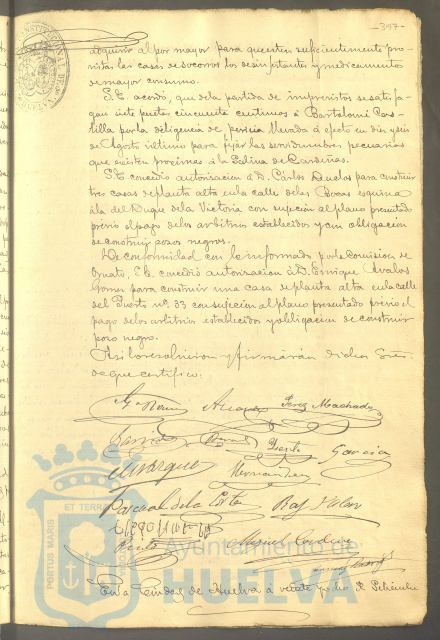 -347-
adquirir al por mayor para que esten suficientemente pro-
vistas las casas de socorros los desinfectantes y medicamentos
de mayor consumo.
S.E. acordó, que de la partida de imprevistos se satisfa-
gan siete ptas cincuenta centimos á Bartolomé Cas-
tilla por la diligencia de pericia llevada á efecto en diez y seis
de Agosto último para fijar las servidumbres pecuarias
que existen próximas á la Salina de Cardeñas.
S.E. concedió autorizacion á D. Carlos Duclos para construir
tres casas de planta alta en la calle de las Bocas esquina
á la del Duque de la Victoria con sujecion al plano presentado
previo el pago de los arbitrios establecidos y con obligacion
de construir pozos negros.
De conformidad con lo informado por la Comision de
Ornato, S.E. concedió autorizacion á D. Enrique Avalos
Gomez para construir una casa de planta alta en la calle
del Puerto nº 33 con sujecion al plano presentado previo el
pago de los arbitrios establecidos y obligacion de construir
pozo negro.
Asi lo resolvieron y firmarán dichos Sres.
de que certifico.
Perez Machado
Garcia
Marquez Hernandez
Pascual de la Corte
Miguel
PORTUS MARIS ET TERRAE
Ayuntamiento de
HUELVA
En la Ciudad de Huelva a veinte y de Setiembre